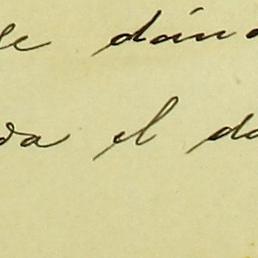 se dána
da el da